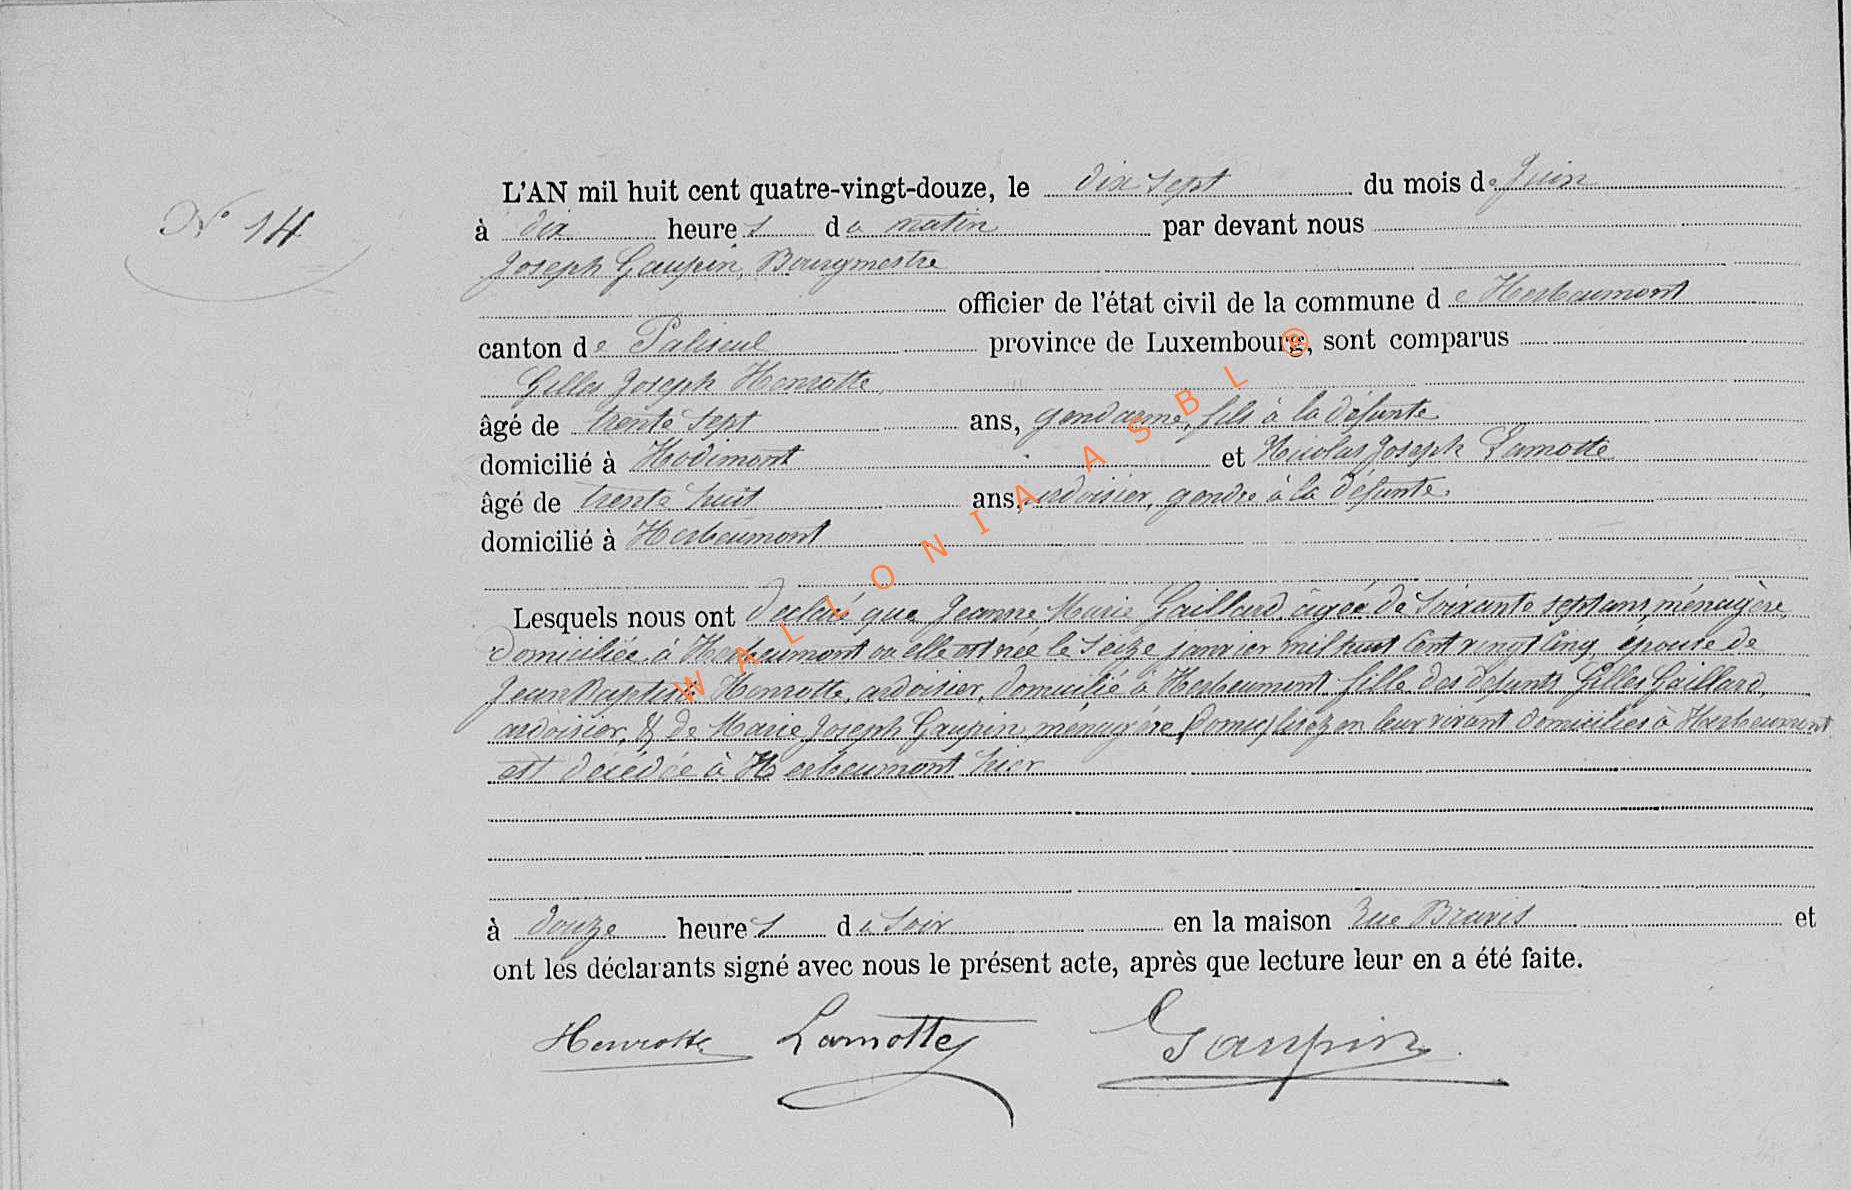 N° 14
L'AN mil huit cent quatre-vingt-douze, le dix sept du mois de Juin
à dix heures du matin par devant nous
Joseph Gaupin, Bourgmestre
officier de l'état civil de la commune de Herbeumont
canton de Paliseul province de Luxembourg, sont comparus
Gilles Joseph Henrotte,
âgé de trente sept ans, gendarme, fils à la défunte
domicilié à Hodimont et Nicolas Joseph Lamotte
âgé de trente huit ans, ardoisier, gendre à la défunte.
domicilié à Herbeumont
Lesquels nous ont déclaré que Jeanne Marie Gaillard, âgée de soixante sept ans, ménagère,
domiciliée à Herbeumont où elle est née le seize janvier mil huit cent vingt cinq, épouse de
Jean Baptiste Henrotte, ardoisier, domicilié à Herbeumont, fille des défunts Gilles Gaillard,
ardoisier, & de Marie Joseph Gaupin, ménagère, lisez en leur vivant domiciliés à Herbeumont
est décédée à Herbeumont hier
à douze heures du soir en la maison rue et
ont les déclarants signé avec nous le présent acte, après que lecture leur en a été faite.
Henrotte Lamotte Gaupin
WALLONIA ASBL ®